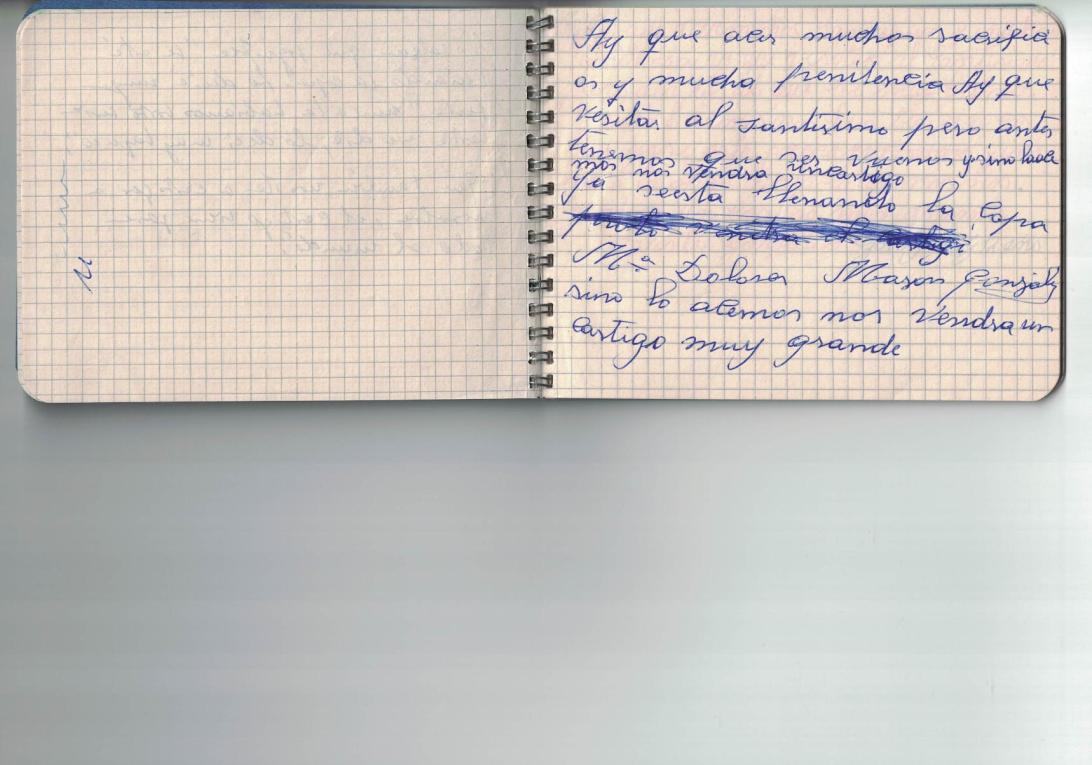 Ay que acer muchos sacrifici
os y mucha penitencia Ay que
vesitar al santisimo pero antes
tenemos que ser vuenos y sino lo ace
mos nos vendra un castigo
Ya seesta llenando la Copa
pronto vendra el castigo
Mª Dolores Mazon Gonzalez
sino lo acemos nos vendra un
castigo muy grande